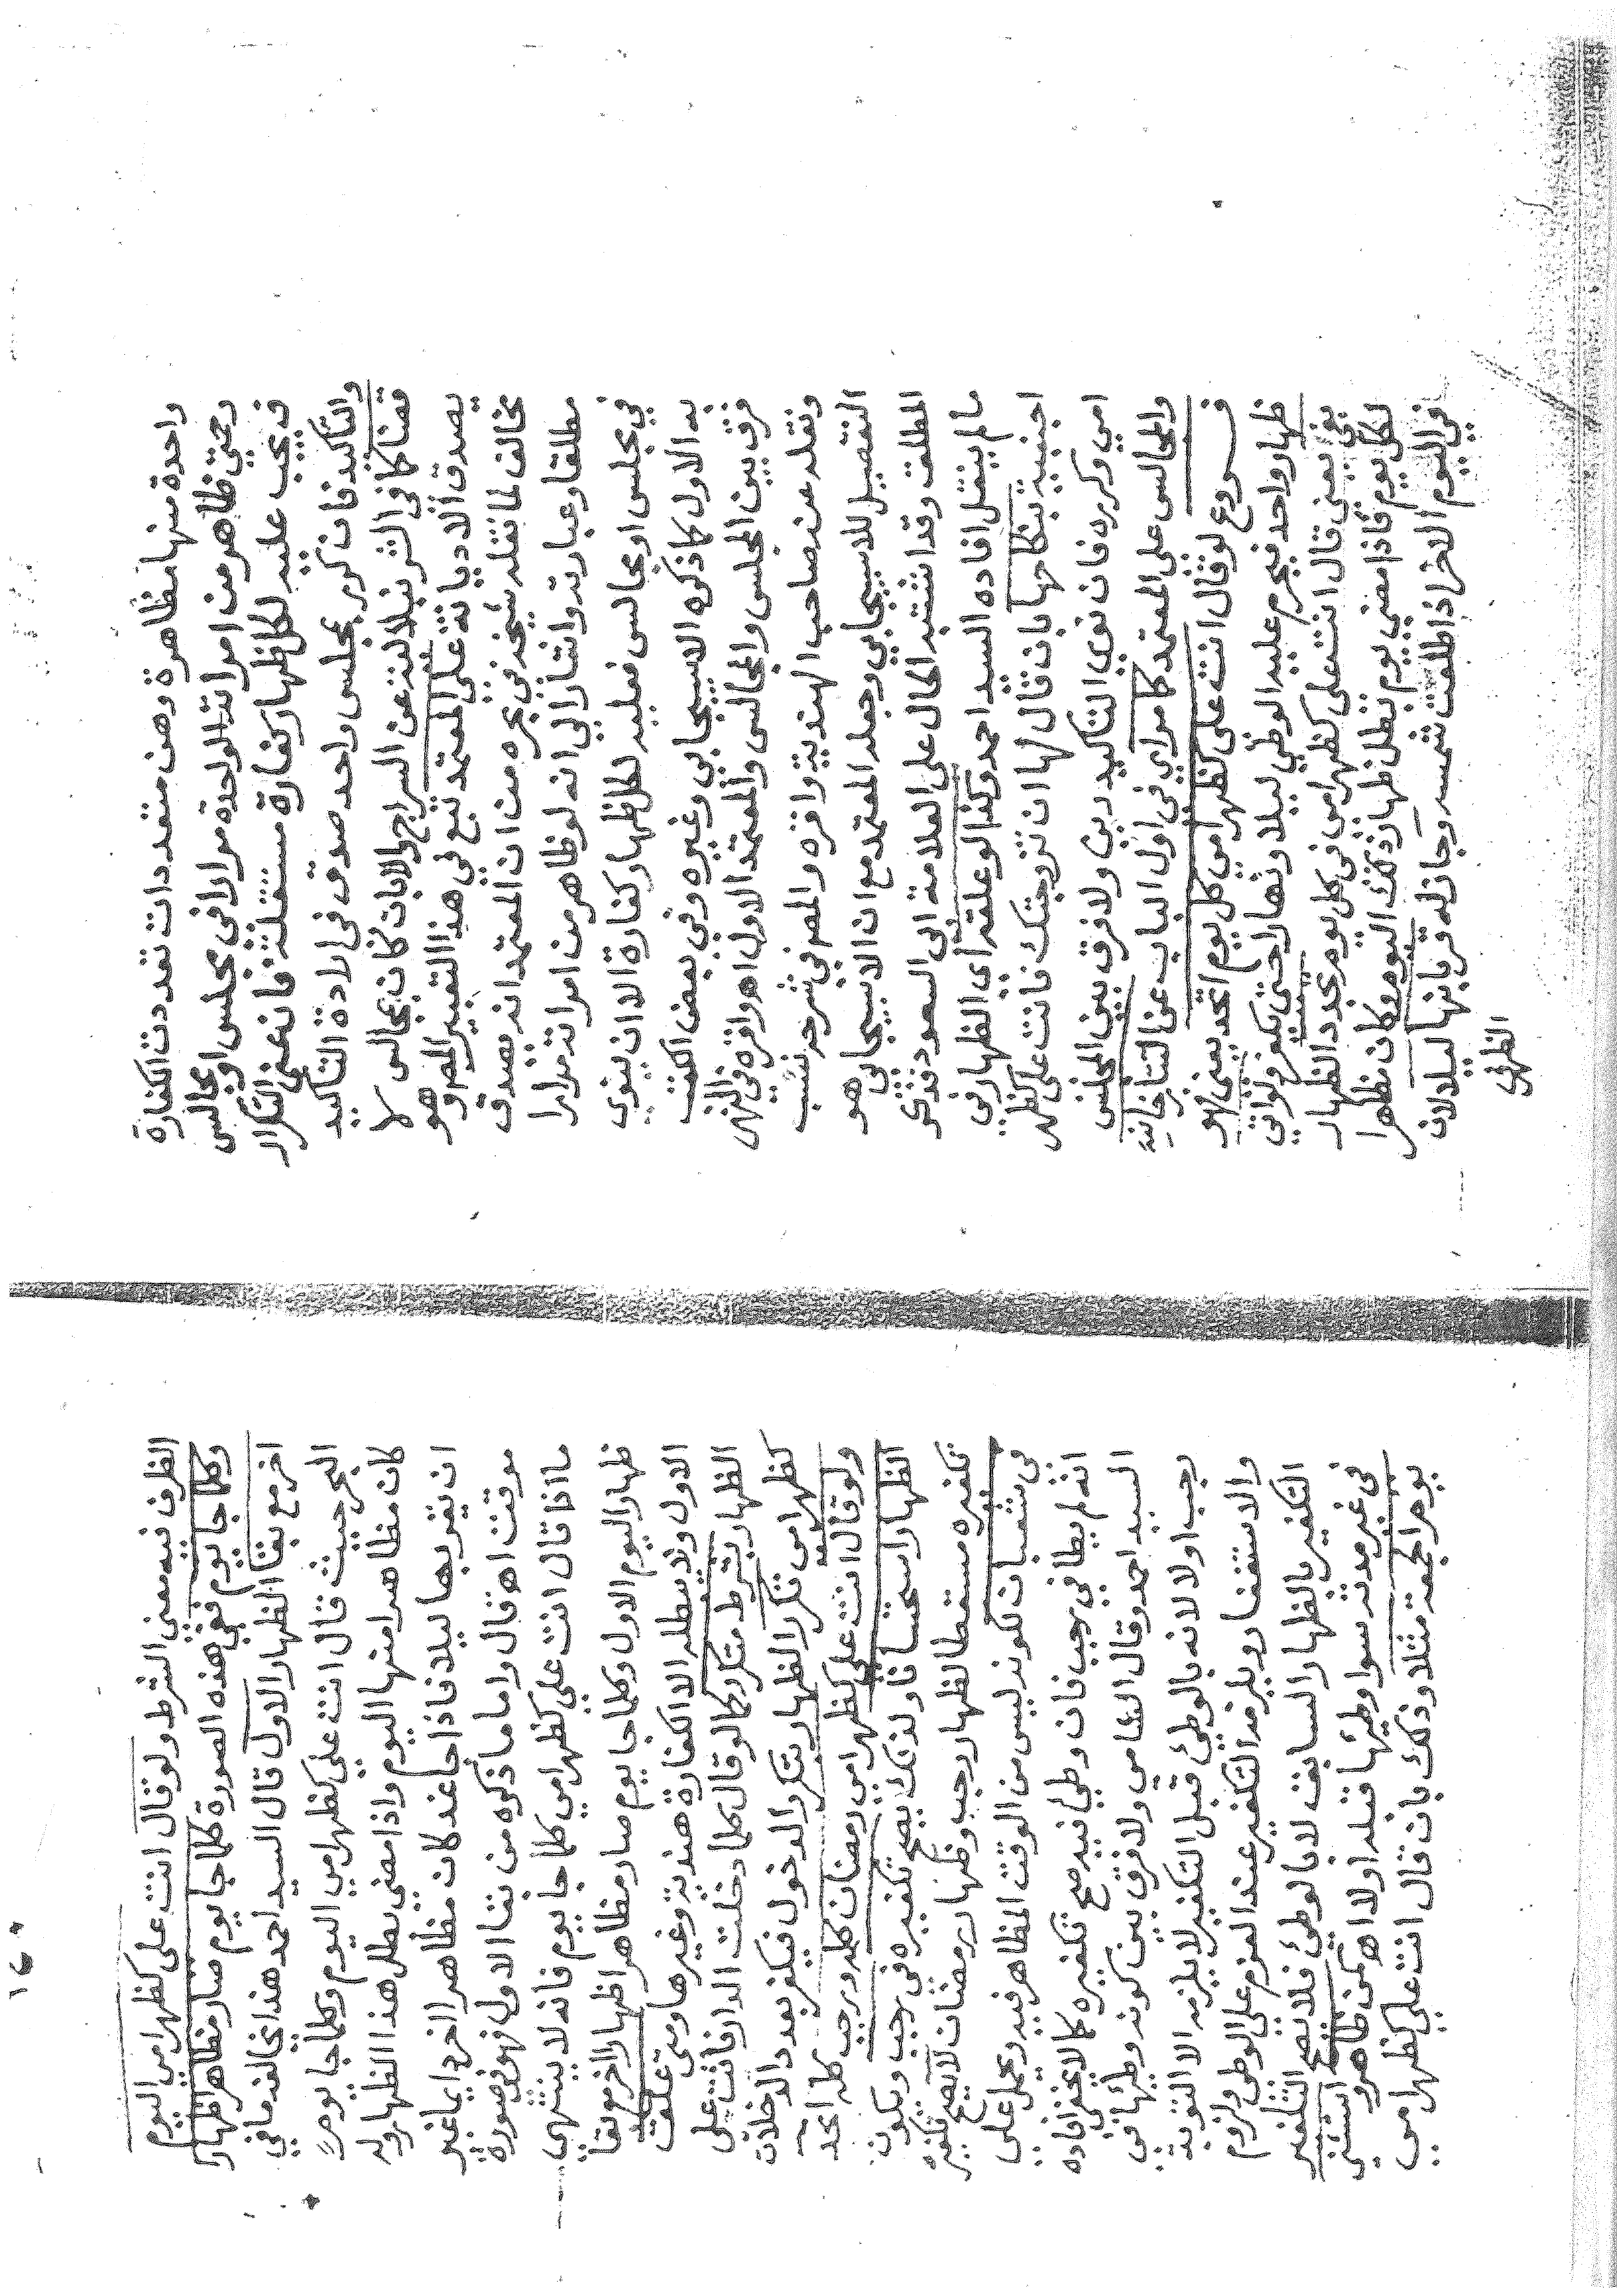 واحدة منها مظاهرة وهن متعددات تعددت الكفارة
رحمتي ظاهر من امراته الواحدة مرارا في مجلس او مجالس
ف يجب عليه لكل ظهار كفارة مستقلة فانه عنى التكرار
والتاكيد فان كرر بمجلس واحد صدق في ارادة التاكيد
قضا كما في الشرنبلالية عن السراج والا بان كان بمجالس لا
يصدق الا ديانة على المعتمد تبع في هذا التعبير المص وهو
مخالف لما نقله شيخه في بحره من ان المعتمد انه يصدق
مطلقا وعبارته واشار الى انه لو ظاهر من امراته مرارا
في مجلس او مجالس فعليه لكل ظهار كفارة الا ان ينوى
به الاول كما ذكره الاسبيجابي وغيره وفي بعض الكتب
فرق بين المجلس والمجالس والمعتمد الاول اه واقره في النهر
ونقله عن صاحب الهندية واقره والمص في شرحه نسب
التفصيل للاسبيجابي وجعله المعتمد مع ان الاسبيجابي هو
المطلق وقد اشتبه الحال على العلامة ابى السعود فنحو
ما لم ينقل افاده السيد احمد وكذا لو علقه اي الظهار في
اجنبية بنكاحها بان قال لها ان تزوجتك فانت علي كظهر
امي وكرره فان نوى التاكيد دين ولا فرق بين المجلس
والمجالس على المعتمد كما مر اي في اول الباب عن التتارخانية
فـــروع لو قال انت علي كظهر امي كل يوم اتحد يعني هو
ظهار واحد فيحرم عليه الوطي ليلا ونهارا حتى يكفر ولو اتي
بفي يعني قال انت علي كظهر امي في كل يوم تجدد الظهار
لكل يوم فاذا مضى يوم بطل ظهار ذلك اليوم وكان مظاهرا
في اليوم الاخر اذا طلعت شمسه وجاز له قربانها ليلا لان
الظرف
الظرف فيه معنى الشرط ولو قال انت علي كظهر امي اليوم
وكلما جا يوم ففي هذه الصورة كلما جا يوم صار مظاهرا ظهارا
اخر مع بقا الظهار الاول قال السيد احمد هذا يخالفه ما في
البحر حيث قال انت علي كظهر امي اليوم وكلما جا يوم
كان مظاهرا منها اليوم واذا مضى بطل هذا الظهار وله
ان يقربها ليلا فاذا جا غد كان مظاهرا اخر دايما غير
موقت اه قال واما ما ذكره من بقا الاول فهو في صورة
ما اذا قال انت علي كظهر امي كلما جا يوم فانه لا ينتهي
ظهار اليوم الاول وكلما جا يوم صار مظاهرا ظهارا اخر مع بقا
الاول ولا يبطله الا الكفارة هندية وغيرها ومتى علق
الظهار بشرط متكرر كما لو قال كلما دخلت الدار فانت علي
كظهر امي تكرر الظهار بتكرر الدخول فيكفر بعدد الدخلات
ولو قال انت علي كظهر امي رمضان كله ورجب كله اتحد
الظهار استحسانا ولذلك يصح تكفيره في رجب ويكون
تكفيره مسقطا لظهار رجب وظهار رمضان لا يصح تكفيره
في شعبان لكونه ليس من الوقت المظاهر فيه ويحمل على
انه لم يطا في رجب فان وطئ فيه صح تكفيره كما لا يخفى افاده
السيد احمد وقال الشامي ولا فرق بين كونه وطئها في
رجب او لا لانه بالوطئ قبل التكفير لا يلزمه الا التوبة
والاستغفار ويلزمه التكفير عند العزم على الوطي ولزوم
التكفير بالظهار السابق لا بالوطئ فلا يصح التكفير
في غير مدته سوا وطئها قبله او لا اه كمن ظاهر واستثنى
يوم الجمعة مثلا وذلك بان قال انت علي كظهر امي